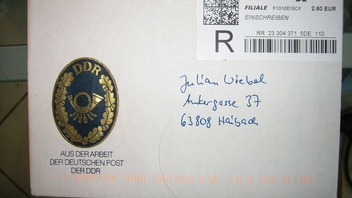 FILIALE F1010E15CF 2.60 EUR
EINSCHREIBEN
R
RR 23 304 371 5DE 110
DDR
Julian Wiebel
Ankergasse 37
63808 Haibach
AUS DER ARBEIT
DER DEUTSCHEN POST
DER DDR